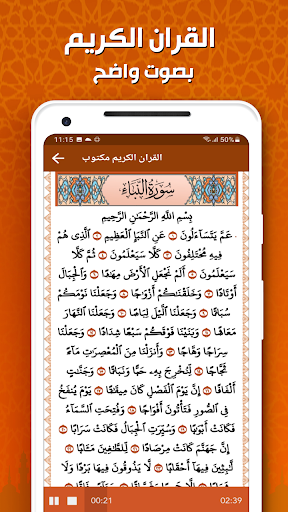 القران الكريم
بصوت واضح
11:15 50%
القران الكريم مكتوب
سورة النبإ
بِسْمِ اللَّهِ الرَّحْمَٰنِ الرَّحِيمِ
عَمَّ يَتَسَاءَلُونَ عَنِ النَّبَإِ الْعَظِيمِ الَّذِي هُمْ
فِيهِ مُخْتَلِفُونَ كَلَّا سَيَعْلَمُونَ ثُمَّ كَلَّا
سَيَعْلَمُونَ أَلَمْ نَجْعَلِ الْأَرْضَ مِهَادًا وَالْجِبَالَ
أَوْتَادًا وَخَلَقْنَاكُمْ أَزْوَاجًا وَجَعَلْنَا نَوْمَكُمْ
سُبَاتًا وَجَعَلْنَا اللَّيْلَ لِبَاسًا وَجَعَلْنَا النَّهَارَ
مَعَاشًا وَبَنَيْنَا فَوْقَكُمْ سَبْعًا شِدَادًا وَجَعَلْنَا
سِرَاجًا وَهَّاجًا وَأَنزَلْنَا مِنَ الْمُعْصِرَاتِ مَاءً
ثَجَّاجًا لِّنُخْرِجَ بِهِ حَبًّا وَنَبَاتًا وَجَنَّاتٍ
أَلْفَافًا إِنَّ يَوْمَ الْفَصْلِ كَانَ مِيقَاتًا يَوْمَ يُنفَخُ
فِي الصُّورِ فَتَأْتُونَ أَفْوَاجًا وَفُتِحَتِ السَّمَاءُ
فَكَانَتْ أَبْوَابًا وَسُيِّرَتِ الْجِبَالُ فَكَانَتْ سَرَابًا
إِنَّ جَهَنَّمَ كَانَتْ مِرْصَادًا لِّلطَّاغِينَ مَآبًا
لَّابِثِينَ فِيهَا أَحْقَابًا لَّا يَذُوقُونَ فِيهَا بَرْدًا
00:21 02:39